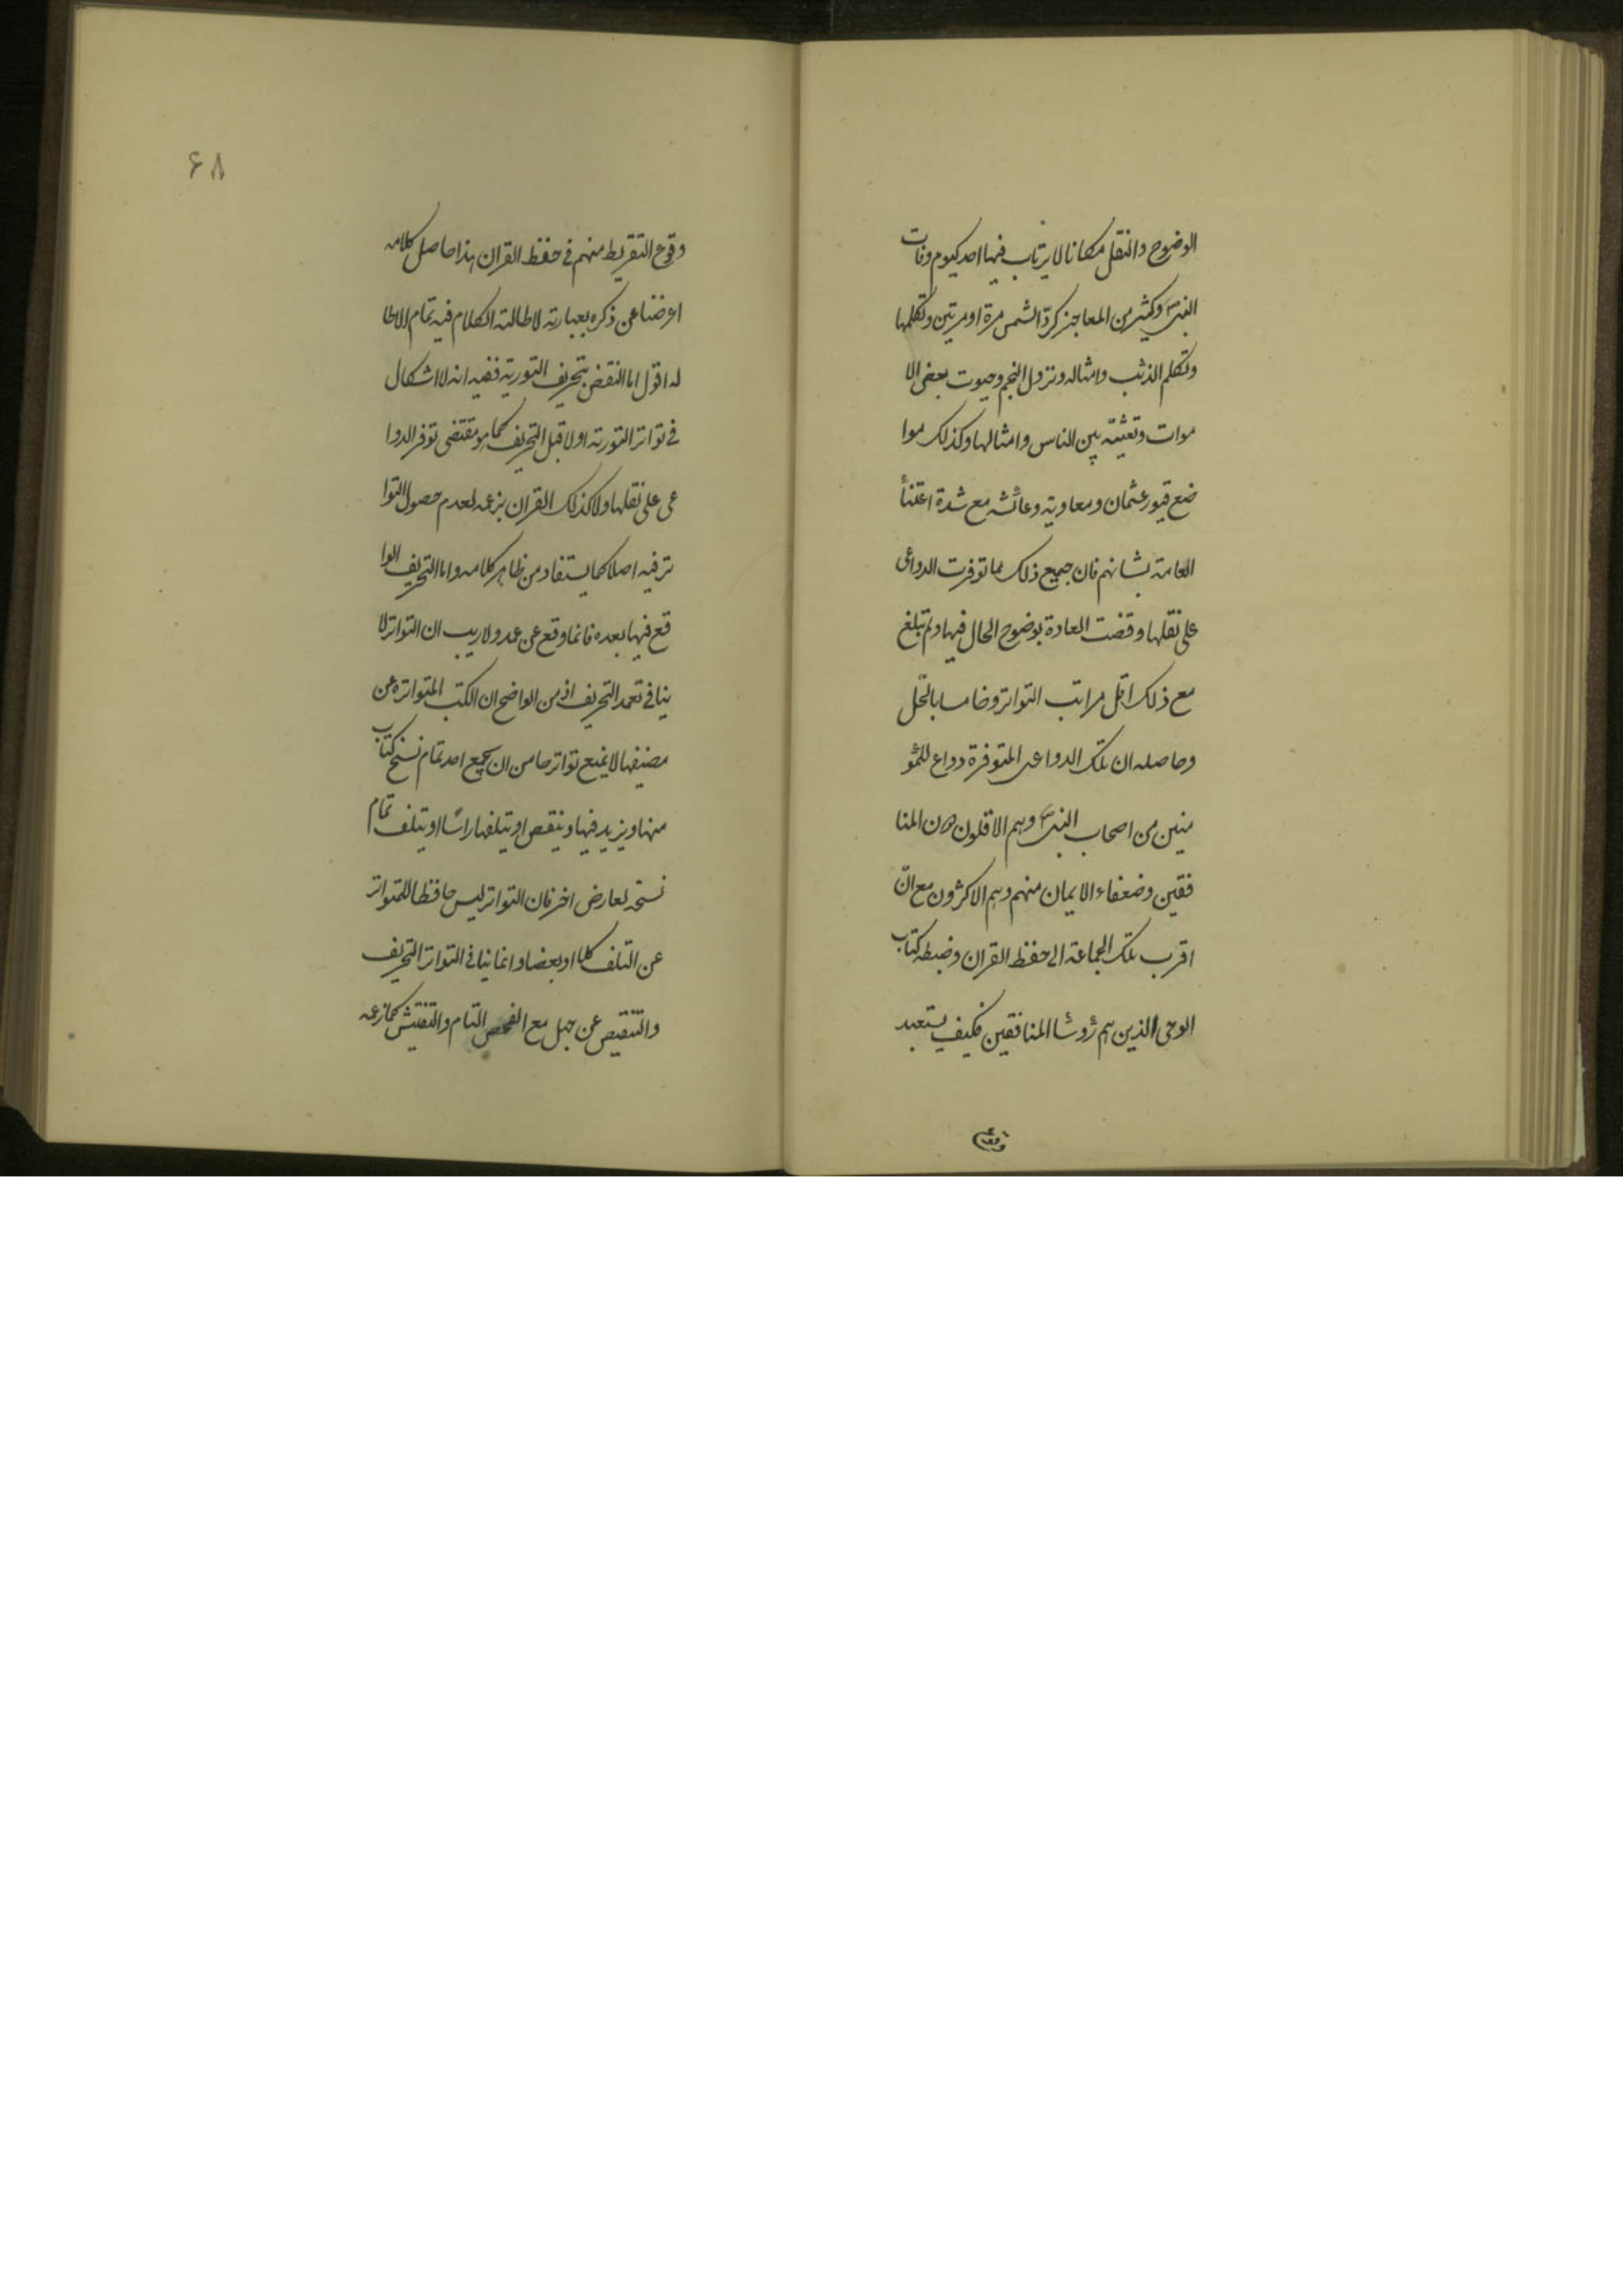 الوضوح والنقل مكانا لا يرتاب فيها احد كيوم وفات
النبى وكثير من المعاجز كردّ الشمس مرة او مرتين وتكلمها
وتكلم الذئب وامثاله ونزول النجم وحيوت بعض الا
موات وتعيّشه بين الناس وامثالها وكذلك موا
ضع قبور عثمان ومعاوية وعائشه مع شدة اعتنأ
العامة بشانهم فان جميع ذلك مما توفرت الدواعى
على نقلها وقضت العادة بوضوح الحال فيها ولم تبلغ
مع ذلك اقل مراتب التواتر وخامسا بالحّل
وحاصله ان تلك الدواعى المتوفرة دواع للمؤ
منين من اصحاب النبى وهم الاقلون دون المنا
فقين وضعفاء الايمان منهم وهم الاكثرون مع انّ
اقرب تلك الجماعة الى حفظ القران وضبطه كتاب
الوحى الذين هم رؤسأ المنافقين فكيف يستعبد
وقوع
۶۸
وقوع التفريط منهم فى حفظ القران هذا حاصل كلامه
اعرضنا عن ذكره بعبارته لاطالته الكلام فيه تمام الاطا
له اقول اما النقض بتحريف التورية ففيه انه لا اشكال
فى تواتر التورية اولا قبل التحريف كما هو مقتضى توفر الدوا
عى على نقلها ولا كذلك القران بزعمه لعدم حصول التوا
تر فيه اصلا كما يستفاد من ظاهر كلامه واما التحريف الوا
قع فيها بعده فانما وقع عن عمد ولا ريب ان التواتر لا
ينافى تعمد التحريف اذ من الواضح ان الكتب المتواترة عن
مصنفها لا يمنع تواترها من ان يجمع احد تمام نسخ كتاب
منها ويزيد فيها وينقص او يتلفها راسًا او يتلف تمام
نسخه لعارض اخر فان التواتر ليس حافظا للمتواتر
عن التلف كلا او بعضا وانما ينافى التواتر التحريف
والتنقيص عن جهل مع الفحص التام والتفتيش كما زعمه